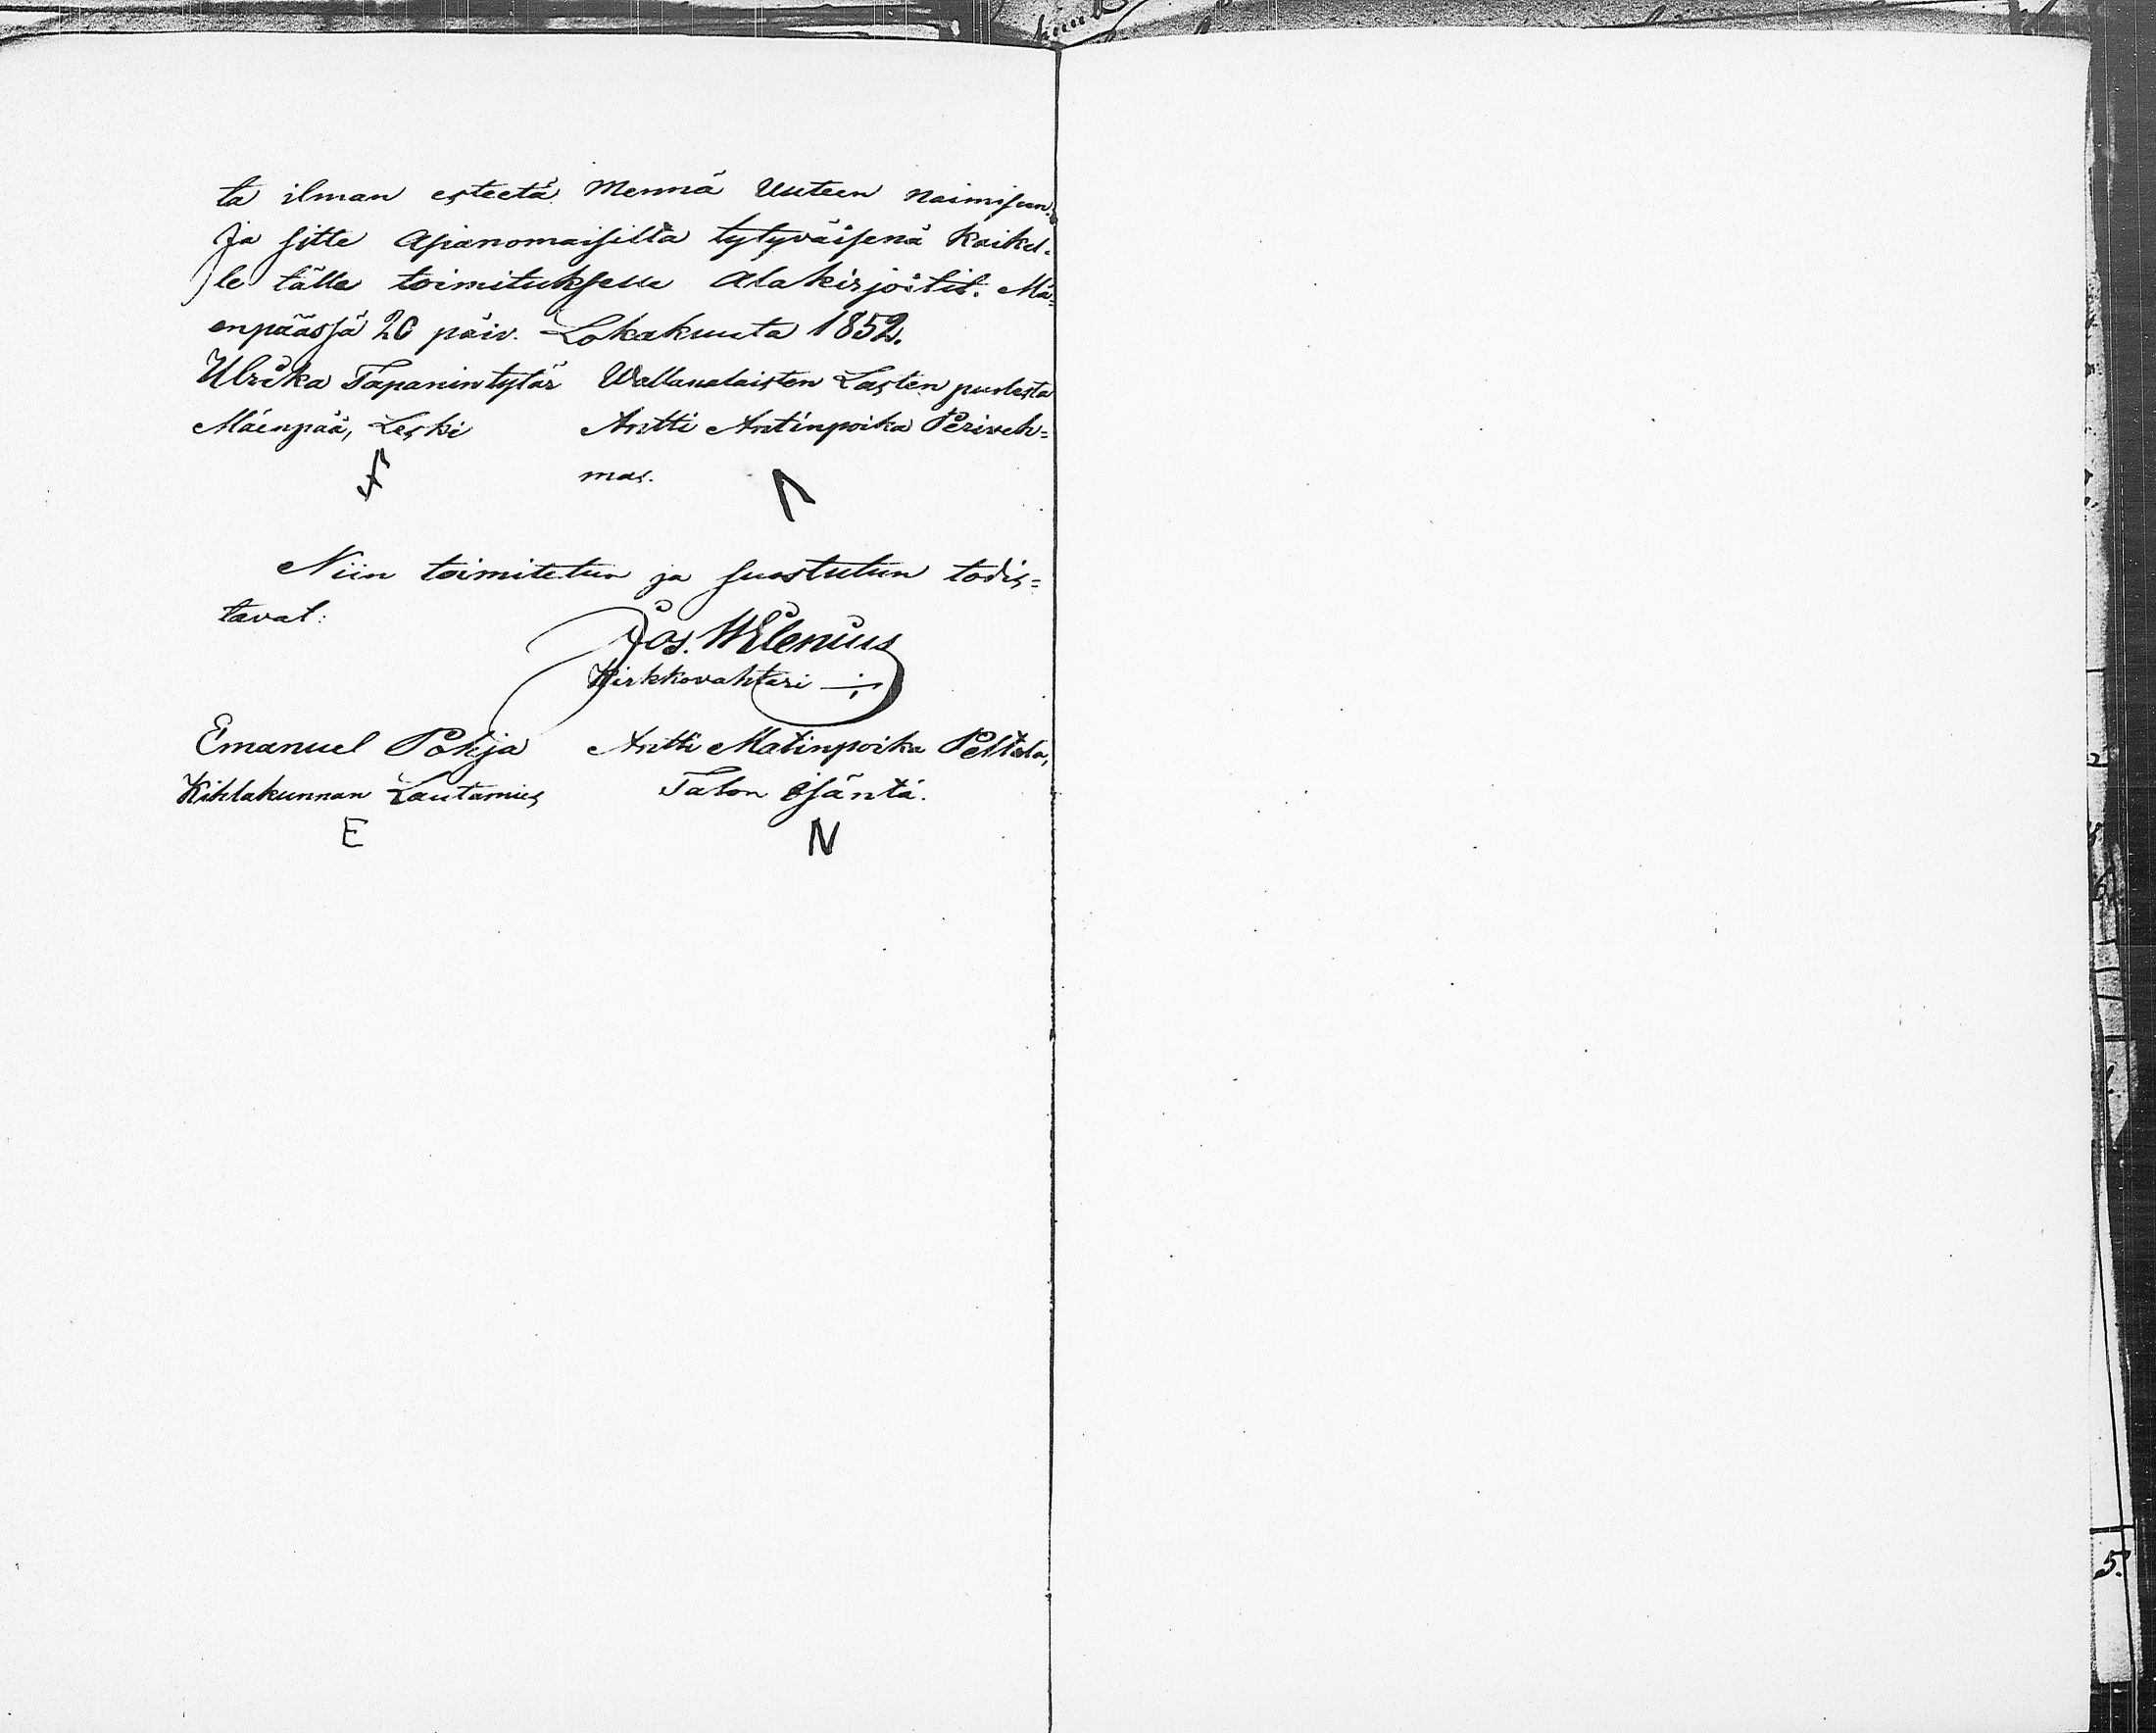 ta ilman esteetä Mennä Uuteen naimiseen.
Ja sitte Asianomaisilta tytyväisenä kaikel-
le tälle toimitukselle Alakirjoitit. Mä-
enpäässä 20 päiv. Lokakuuta 1852.
Ulrika Tapanintytär Wallanalaisten Lasten puolesta
Mäenpää, Leski Antti Antinpoika Periveh=
mas.
Niin toimitetun ja suostutun todis=
tavat:
Jos. Wilenius
Kirkkovahtari
Emanuel Pohja Antti Matinpoika Peltola,
Kihlakunnan Lautamies Talon Isäntä.
E N